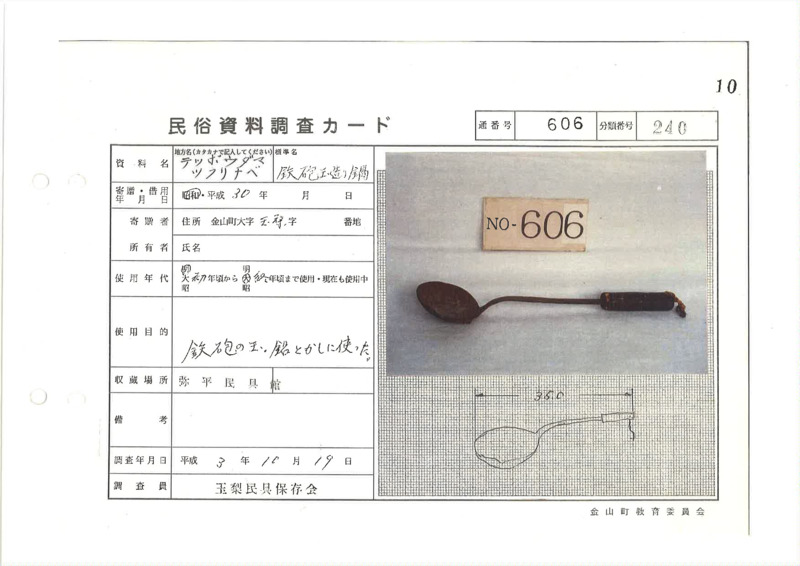 10
民俗資料調査カード
通番号 606 分類番号 240
資料名 地方名(カタカナで記入してください) テッポウダマ ツクリナベ 標準名 鉄砲玉造り鍋
寄贈・借用年月日 昭和・平成 30 年 月 日
寄贈者 住所 金山町大字 玉梨 字 番地
所有者 氏名
使用年代 明 大 昭 初 年頃から 明 昭 年頃まで使用・現在も使用中
使用目的 鉄砲の玉、鉛とかしに使った。
収蔵場所 弥平民具館
備考
調査年月日 平成 3 年 10 月 19 日
調査員 玉梨民具保存会
NO-606
35.0
金山町教育委員会